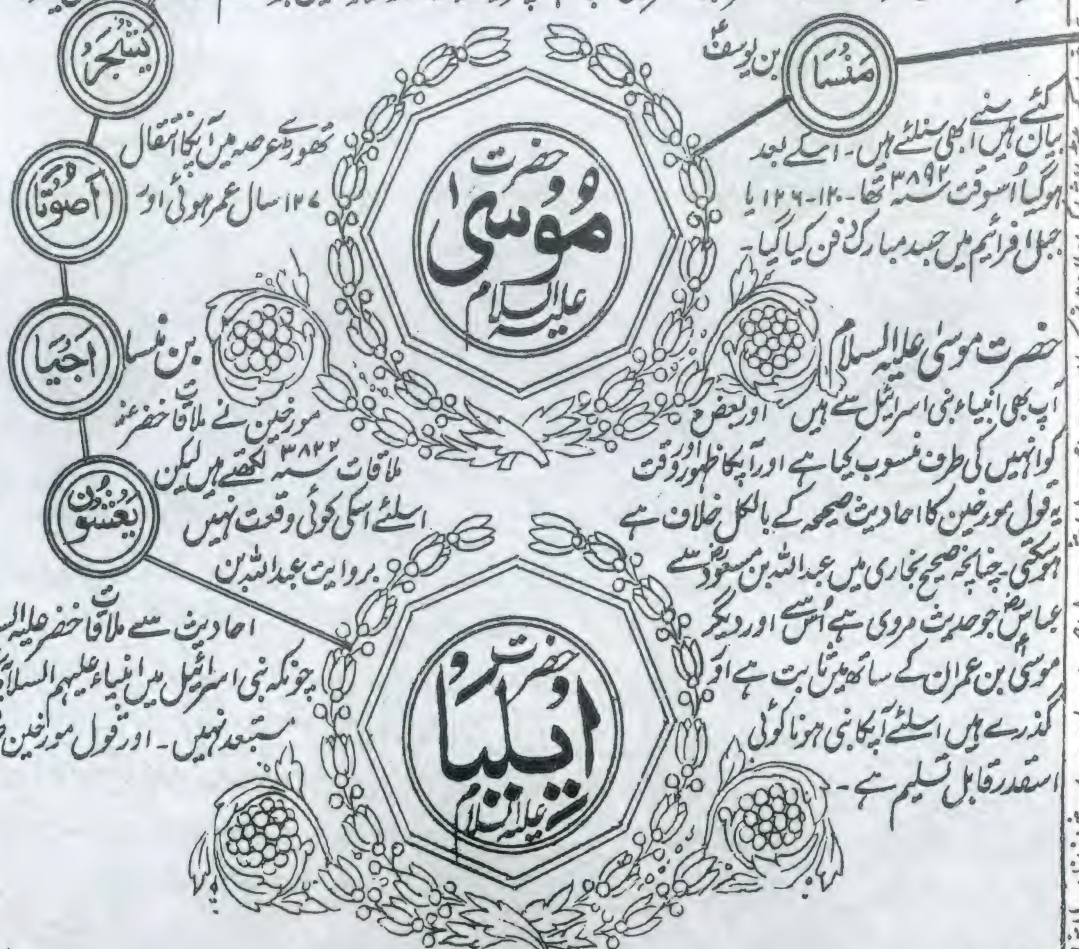 یشجر
اصوتا
اجیا
یعنسون
منسا
بن یوسفؑ
حضرت
موسیٰ
علیہ السلام
گئے ہیں
بیان ہیں ابھی سنلئے ہیں۔ اسکے بعد تھوڑے عرصہ میں آپکا انتقال
ہوگیا اسوقت سنہ ۳۸۹۲ تھا۔ ۱۲۰-۱۲۶ یا ۱۲۷ سال عمر ہوئی اور
جبل افرائیم میں جسد مبارک دفن کیا گیا۔
حضرت موسیٰ علیہ السلام بن منسا
آپ بھی انبیاء بنی اسرائیل سے ہیں اور بعض مورخین نے ملاقات خضرؑ
کو انہیں کی طرف منسوب کیا ہے اور آپکا ظہور اور وقت ملاقات سنہ ۳۸۲۲ لکھتے ہیں لیکن
یہ قول مورخین کا احادیث صحیحہ کے بالکل خلاف ہے اسلئے اسکی کوئی وقعت نہیں
ہوسکتی۔ چنانچہ صحیح بخاری میں عبداللہ بن مسعودؓ سے بروایت عبداللہ بن
عباسؓ جو حدیث مروی ہے اُس سے اور دیگر احادیث سے ملاقات خضر علیہ
موسیٰؑ بن عمران کے ساتھ میں ثابت ہے اور چونکہ بنی اسرائیل میں انبیاء علیہم السلام
گذرے ہیں اسلئے آپکا نبی ہونا کوئی مستبعد نہیں۔ اور قول مورخین
اسقدر قابل تسلیم ہے۔
حضرت
ایلیا
علیہ السلام